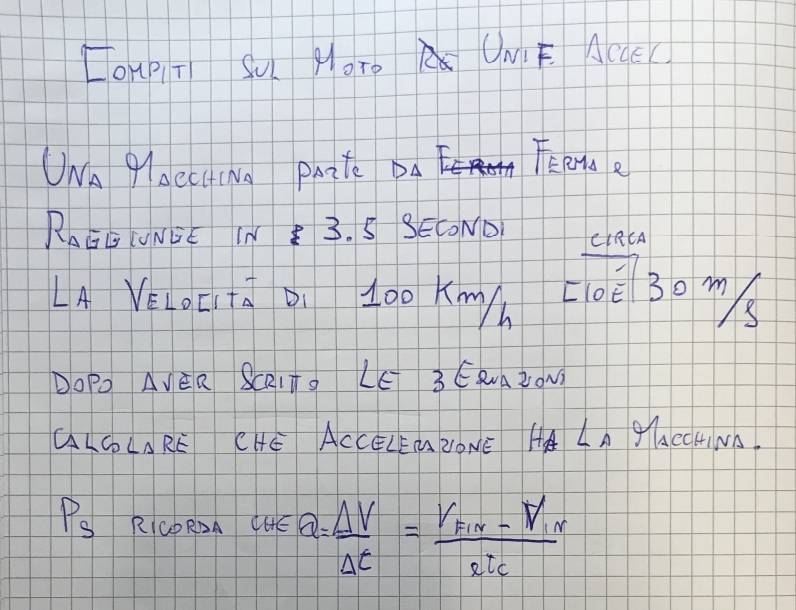 COMPITI SUL MOTO UNIF. ACCEL.
UNA MACCHINA PARTE DA FERMA e
RAGGIUNGE IN 3.5 SECONDI
CIRCA
LA VELOCITÀ DI 100 Km/h CIOÉ 30 m/s
DOPO AVER SCRITO LE 3 EQUAZIONI
CALCOLARE CHE ACCELERAZIONE HA LA MACCHINA.
PS RICORDA CHE a = ΔV/Δt = (V FIN - V IN)/etc